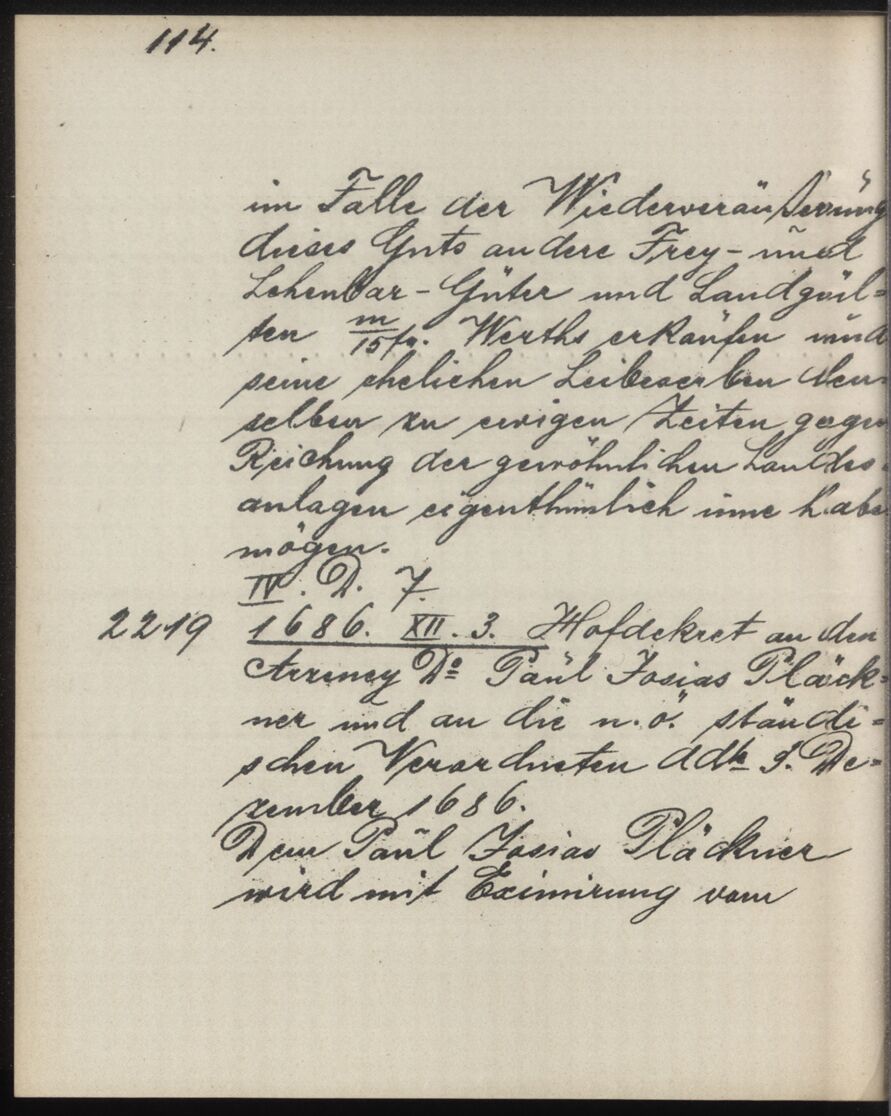 114.
im Falle der Wiederveräußerung
dieses Guts andere Frey- und
Lehenbar-Güter und Landgül=
ten m/15 fr. Werths erkaufen und
seine ehelichen Leibeserben den=
selben zu ewigen Zeiten gegen
Reichung der gewöhnlichen Landes=
anlagen eigenthümlich inne habe
mögen.
IV. D. 7.
2219 1686. XII. 3. Hofdekret an den
Arzeney Do Paul Josias Pläck=
ner und an die n.ö. ständi=
schen Verordneten ddto 3. De=
zember 1686.
Dem Paul Josias Pläckner
wird mit Eximirung vom